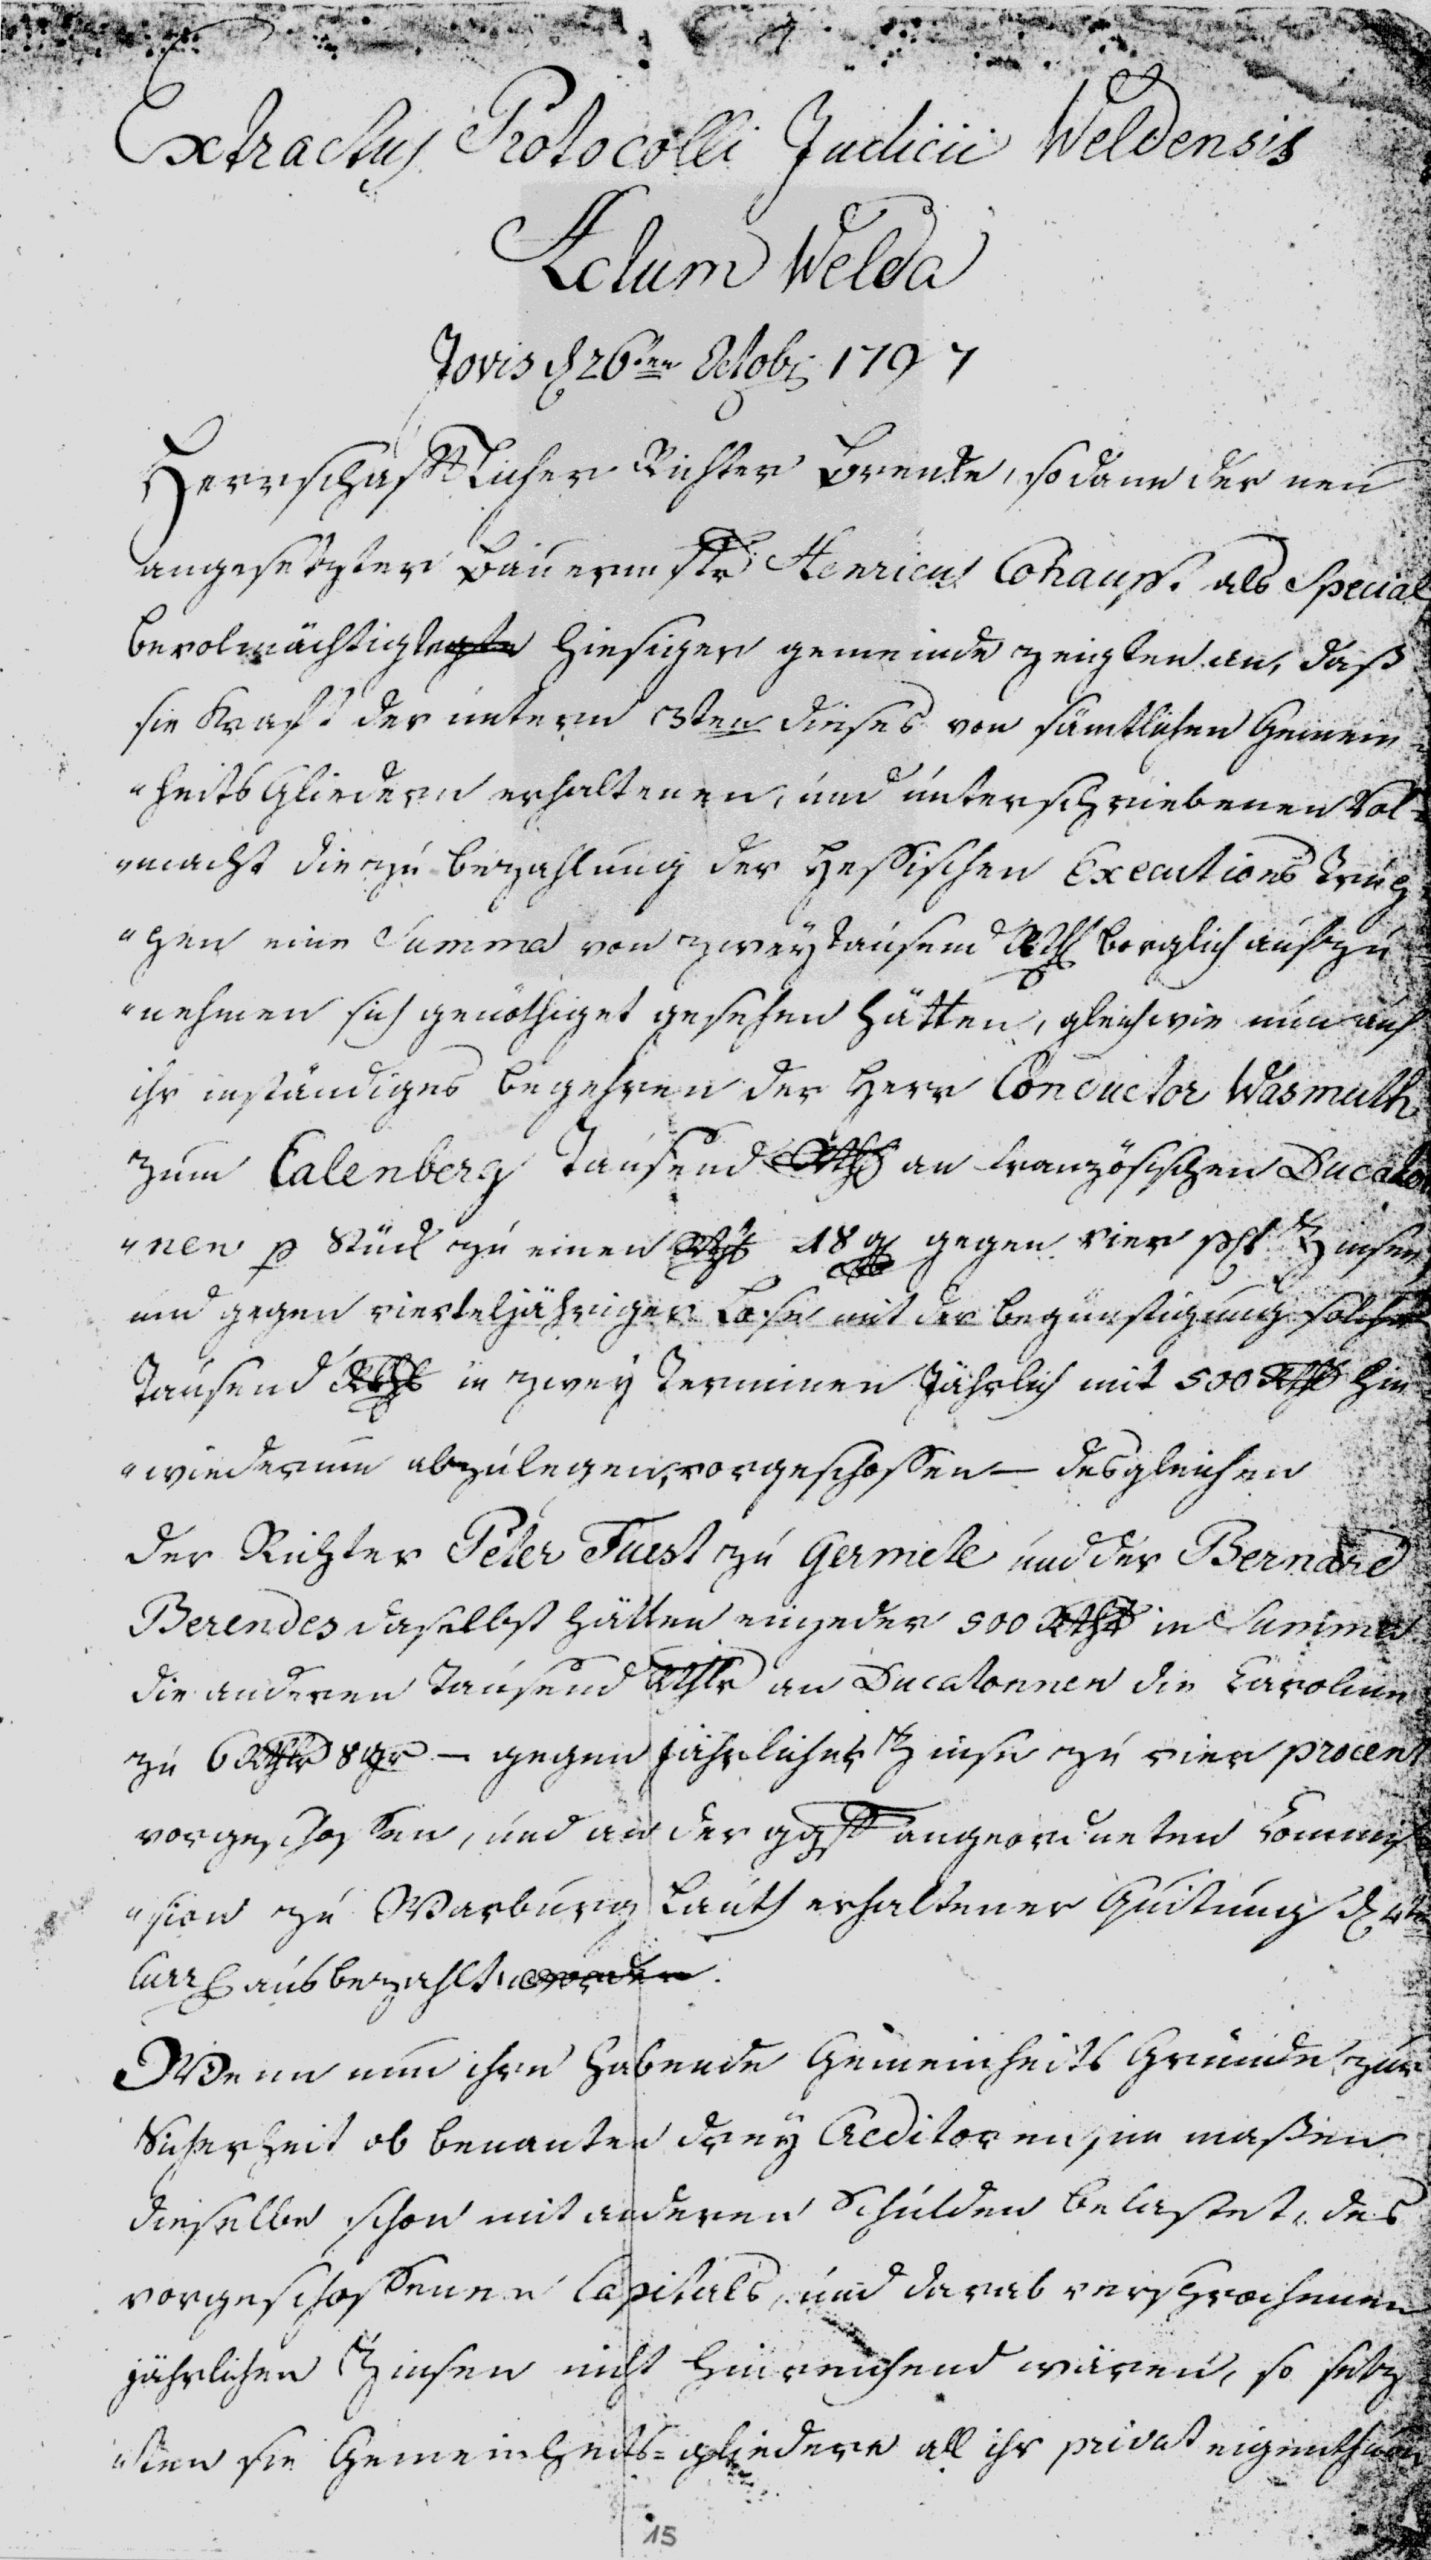 Extractus Protocolli Judicii Weldensis
Actum Welda
Jovis d 26ten Octobr 1797
Herrschafftlicher Richter Brende, so dann der neu
angesetzter Bauermstr Henricus Cohausz. als Special
bevolmächtigte hiesiger gemeinde zeigten an, daß
sie Kraft der unterm 3ten dieses von sämtlichen Gemein
"heits Gliedern erhaltenen, und unterschriebenen Vol-
"macht die zu bezahlung der Hessischen Executions Trup
"pen eine Summa von zweytausend Rthlr borglich aufzu
"nehmen sich genöthiget gesehen hätten, gleichwie nun auf
ihr inständiges begehren der Herr Conductor Wasmuth
zum Calenberg Tausend Rthlr an französischen Ducaton
"nen p Stück zu einen Rthlr 18 gr gegen vier pCt Zinsen
und gegen vierteljähriger Lose mit der begünstigung solche
Tausend Rthlr in zwey Terminen Jährlich mit 500 Rthlr hin
"wiederum abzulegen, vorgeschossen – desgleichen
der Richter Peter Fuest zu Germete und der Bernard
Berendes daselbst hätten ein jeder 500 Rthlr in Summa
die anderen Tausend Rthlr an Ducatonnen die Caroline
zu 6 Rthlr 8 gr – gegen jährlicher Zinse zu vier procent
vorgeschossen, und an der ggst angeordneten Commis
"sion zu Warburg Lauth erhaltener Quitung d 4ten
Curr ausbezahlt worden.
Wenn nun ihre habende Gemeinheits Gründe zur
Sicherheit ob benanter drey Creditoren, im maßen
dieselbe schon mit anderen Schulden belastet, des
vorgeschossenen Capitals, und darab versprochenen
jährlichen Zinsen nicht hinreichend wären, so setz
"ten sie Gemeinheits-gliedere all ihr privat eigenthum
15